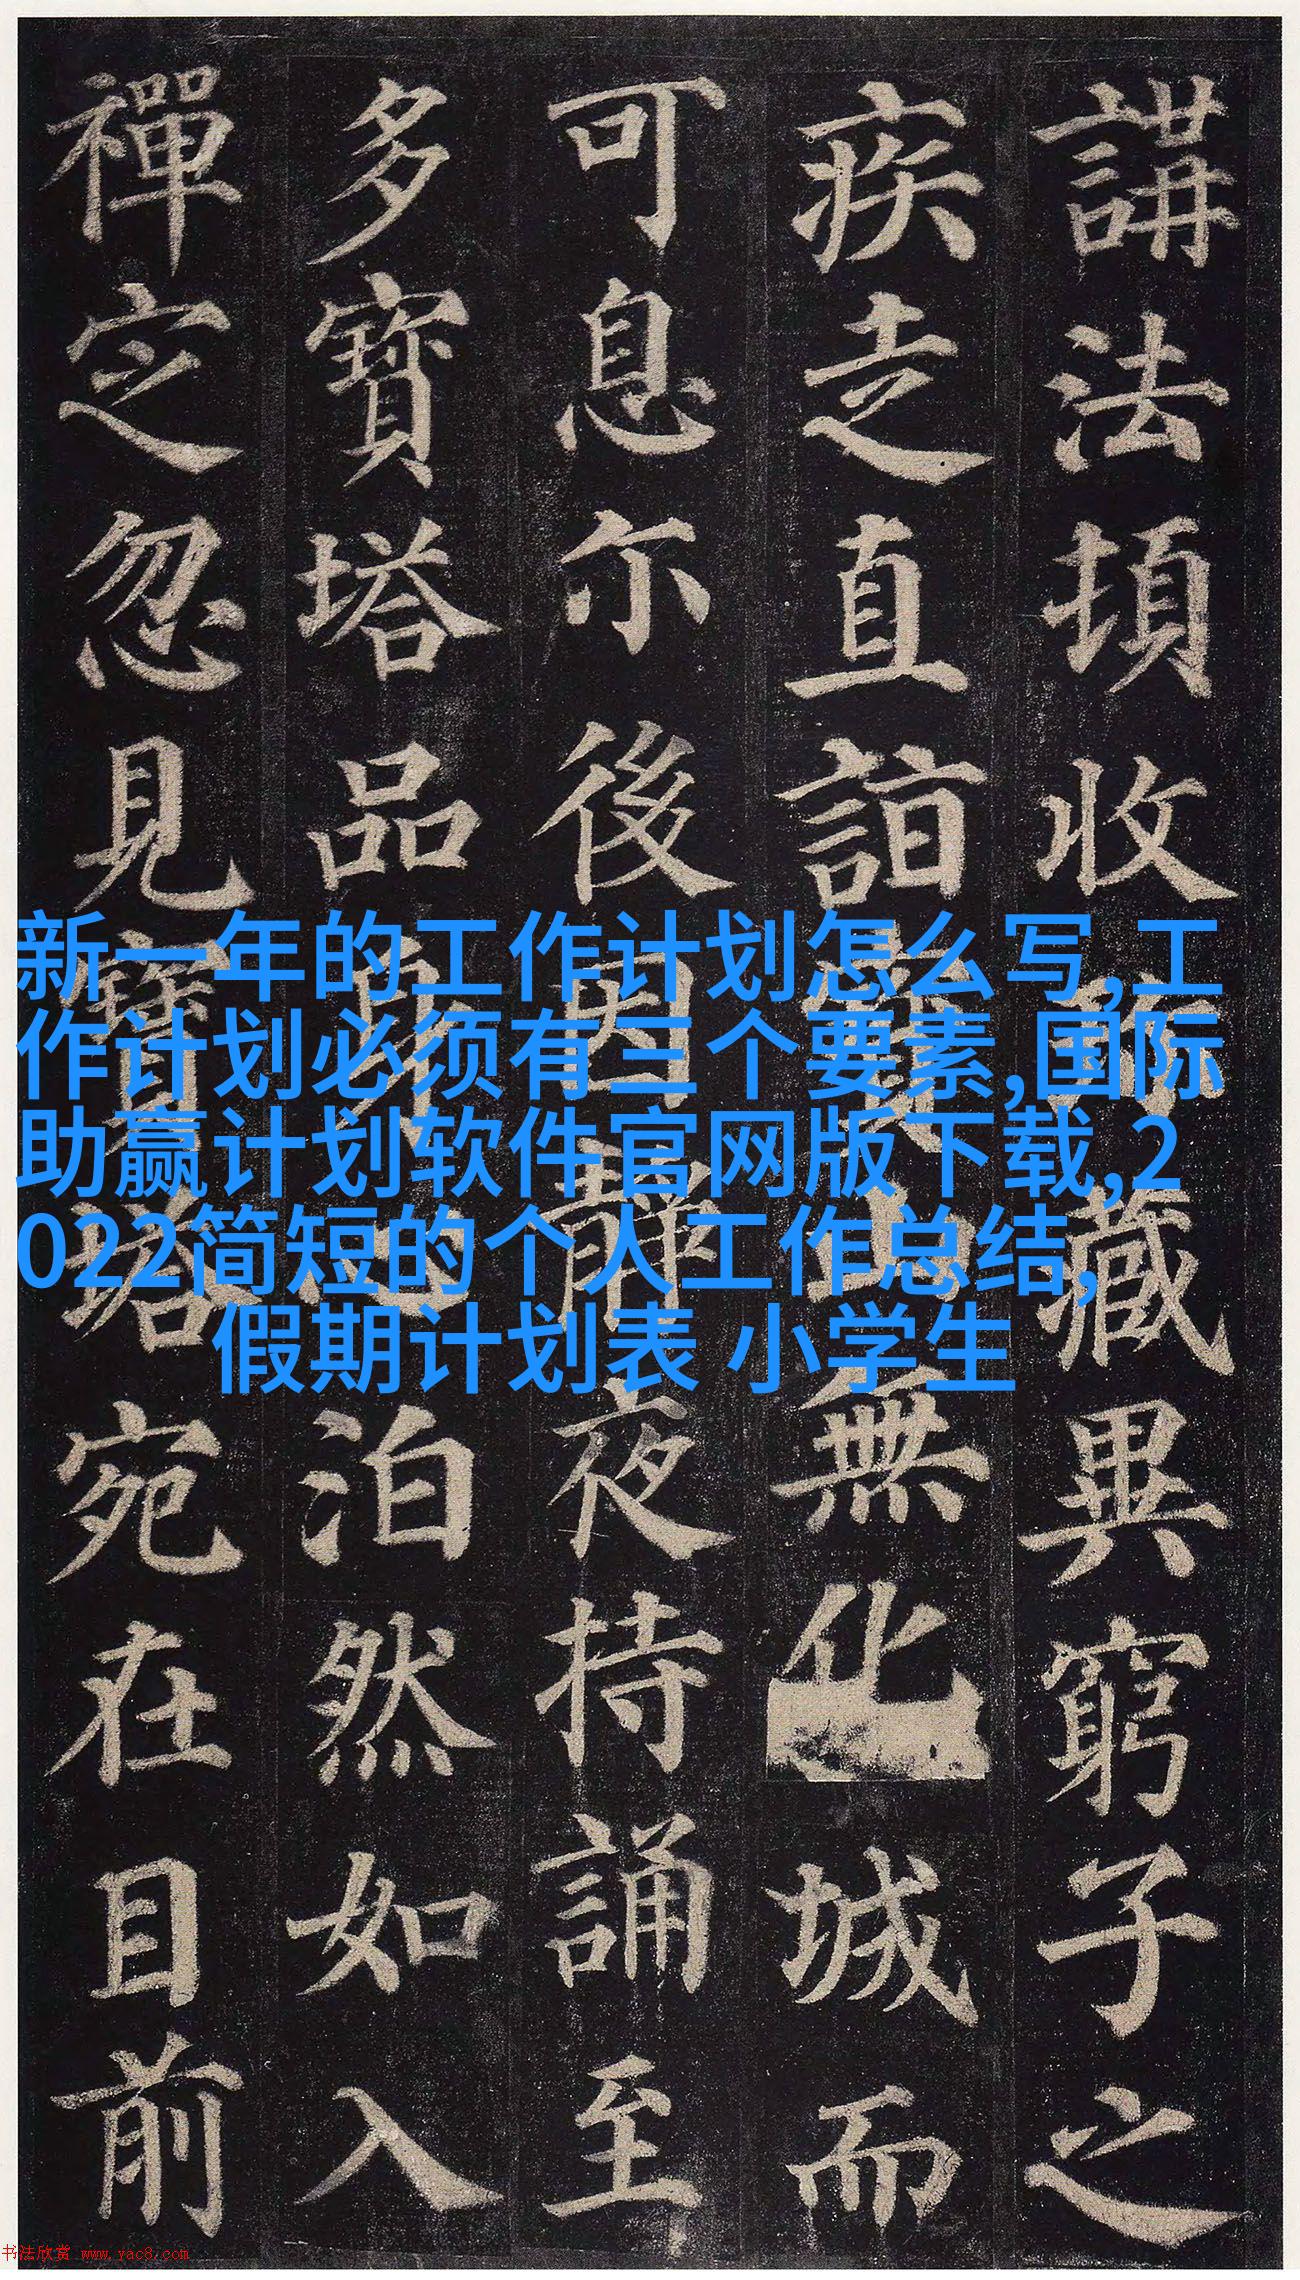 講法頂收所藏異窮子之
疾走直詣寶山無化城而
可息尒後因靜夜持誦至
多寶塔品身心泊然如入
禪定忽見寶塔宛在目前
新一年的工作计划怎么写,工
作计划必须有三个要素,国际
助赢计划软件官网版下载,2
022简短的个人工作总结,
假期计划表 小学生
书法欣赏 www.yac8.com